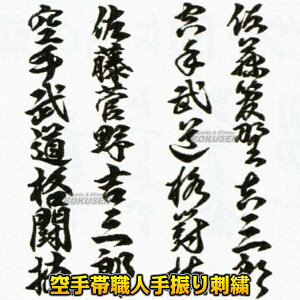 佐藤菅野吉三郎
空手武道格闘技
佐藤菅野吉三郎
空手武道格闘技
ROKUSEN
空手帯職人手振り刺繍